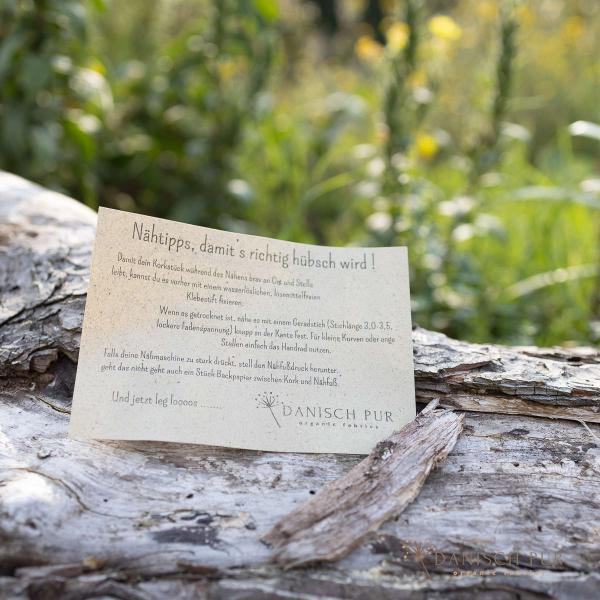 Nähtipps, damit's richtig hübsch wird !
Damit dein Korkstück während des Nähens brav an Ort und Stelle
bleibt, kannst du es vorher mit einem wasserlöslichen, lösemittelfreien
Klebestift fixieren.
Wenn es getrocknet ist, nähe es mit einem Geradstich (Stichlänge 3,0-3,5,
lockere Fadenspannung) knapp an der Kante fest. Für kleine Kurven oder enge
Stellen einfach das Handrad nutzen.
Falls deine Nähmaschine zu stark drückt, stell den Nähfußdruck herunter,
geht das nicht geht auch ein Stück Backpapier zwischen Kork und Nähfuß.
Und jetzt leg loooos .......
DANISCH PUR
organic fabrics
DANISCH PUR
organic fabrics